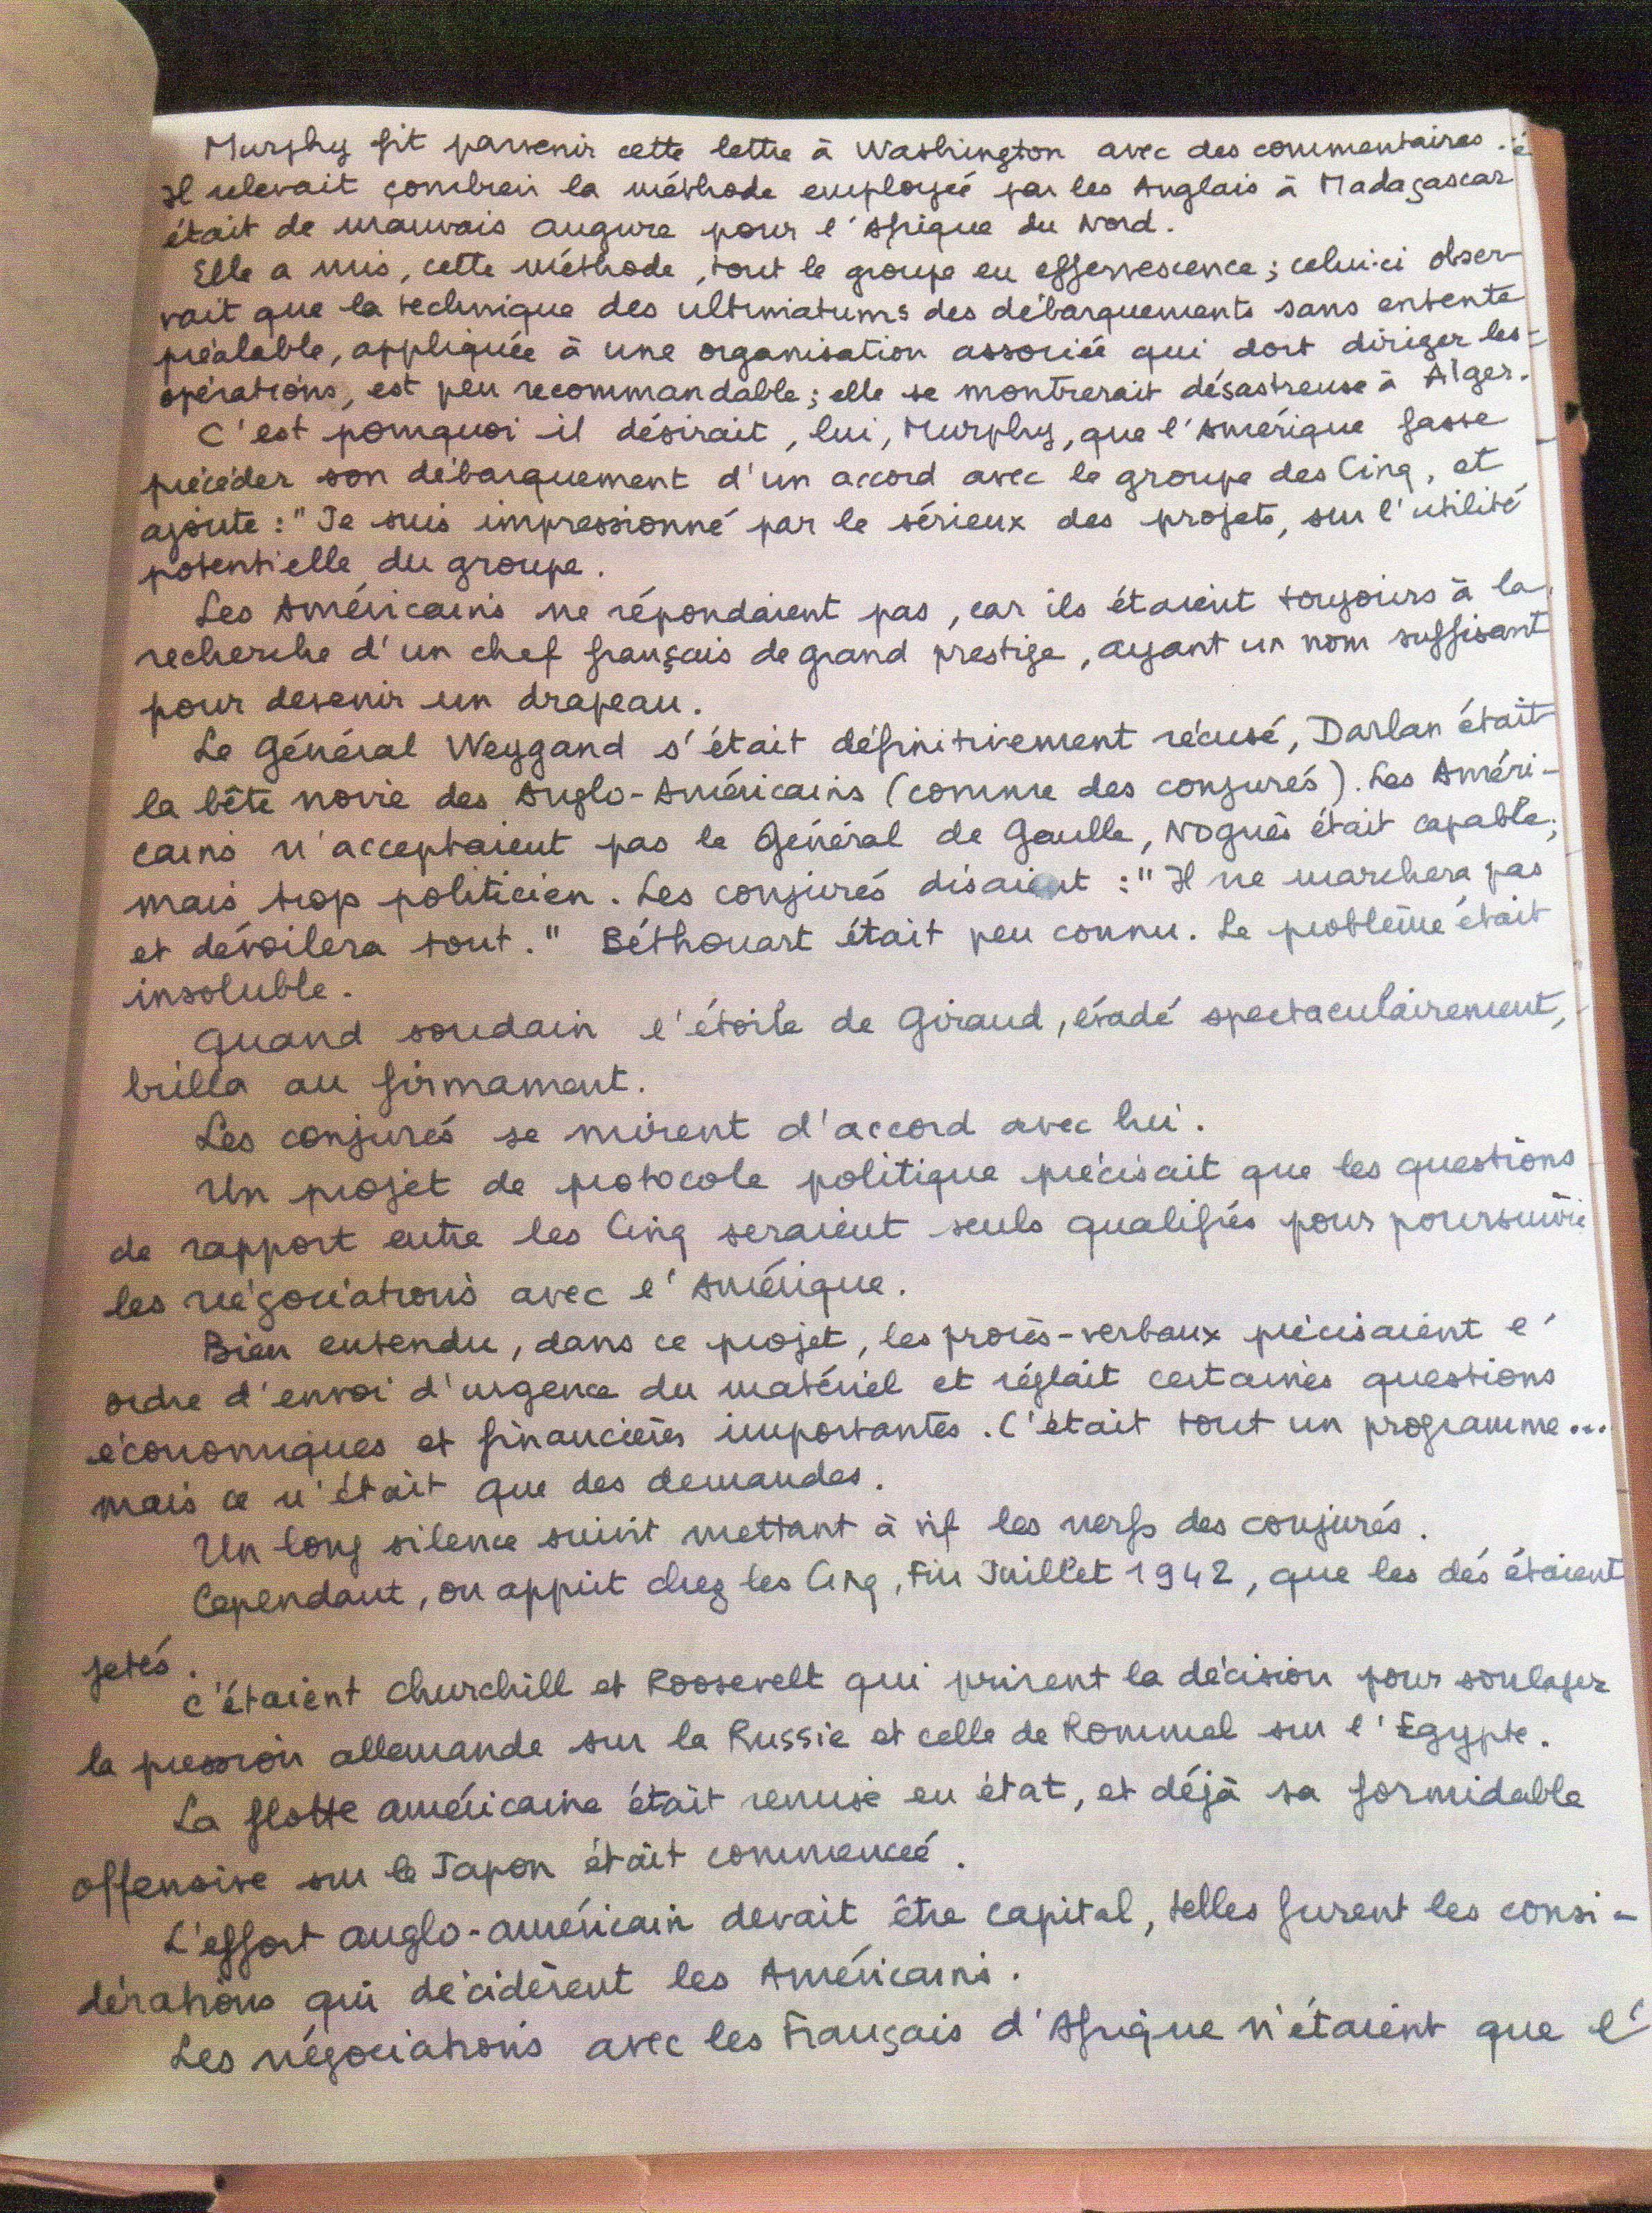 Murphy fit parvenir cette lettre à Washington avec des commentaires.
Il relevait combien la méthode employée par les Anglais à Madagascar
était de mauvais augure pour l'Afrique du Nord.
Elle a mis, cette méthode, tout le groupe en effervescence ; celui-ci obser-
vait que la technique des ultimatums des débarquements sans entente
préalable, appliquée à une organisation associée qui doit diriger les
opérations, est peu recommandable ; elle se montrerait désastreuse à Alger.
C'est pourquoi il désirait, lui, Murphy, que l'Amérique fasse
précéder son débarquement d'un accord avec le groupe des Cinq, et
ajoute : "Je suis impressionné par le sérieux des projets, sur l'utilité
potentielle du groupe.
Les Américains ne répondaient pas, car ils étaient toujours à la
recherche d'un chef français de grand prestige, ayant un nom suffisant
pour devenir un drapeau.
Le Général Weygand s'était définitivement récusé, Darlan était
la bête noire des Anglo-Américains (comme des conjurés). Les Améri-
cains n'acceptaient pas le Général de Gaulle, Noguès était capable,
mais trop politicien. Les conjurés disaient : "Il ne marchera pas
et dévoilera tout." Béthouart était peu connu. Le problème était
insoluble.
Quand soudain l'étoile de Giraud, évadé spectaculairement,
brilla au firmament.
Les conjurés se mirent d'accord avec lui.
Un projet de protocole politique précisait que les questions
de rapport entre les Cinq seraient seuls qualifiés pour poursuivre
les négociations avec l'Amérique.
Bien entendu, dans ce projet, les procès-verbaux précisaient l'
ordre d'envoi d'urgence du matériel et réglait certaines questions
économiques et financières importantes. C'était tout un programme...
mais ce n'était que des demandes.
Un long silence suivit mettant à vif les nerfs des conjurés.
Cependant, on apprit chez les Cinq, Fin Juillet 1942, que les dés étaient
jetés.
C'étaient Churchill et Roosevelt qui prirent la décision pour soulager
la pression allemande sur la Russie et celle de Rommel sur l'Egypte.
La flotte américaine était remise en état, et déjà sa formidable
offensive sur le Japon était commencée.
L'effort anglo-américain devait être capital, telles furent les consi-
dérations qui décidèrent les Américains.
Les négociations avec les Français d'Afrique n'étaient que l'